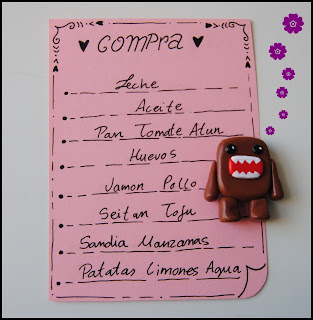 COMPRA
Leche
Aceite
Pan Tomate Atun
Huevos
Jamon Pollo
Seitan Tofu
Sandia Manzanas
Patatas Limones Agua